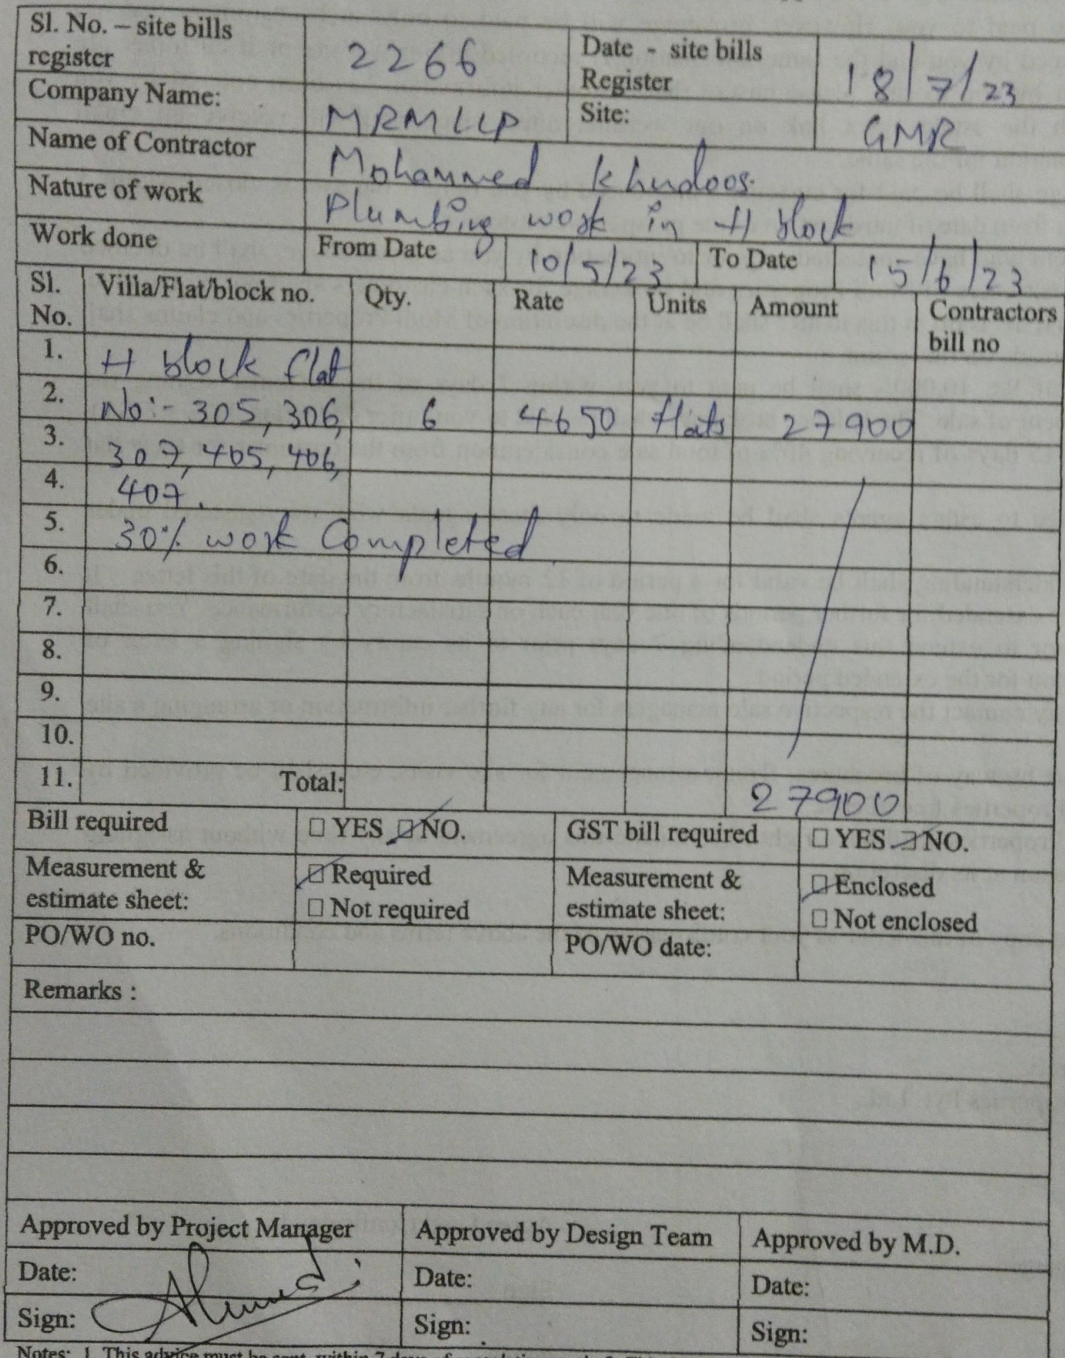 Sl. No. – site bills register 2266 Date - site bills Register 18/7/23
Company Name: MRMLLP Site: GMR
Name of Contractor Mohammed khudoos.
Nature of work Plumbing work in H block
Work done From Date 10/5/23 To Date 15/6/23
Sl. No. Villa/Flat/block no. Qty. Rate Units Amount Contractors bill no
1. H block flat
2. No:- 305, 306, 6 4650 flats 27900
3. 307, 405, 406,
4. 407.
5. 30% work Completed
6.
7.
8.
9.
10.
11. Total: 27900
Bill required ☐ YES ☑ NO. GST bill required ☐ YES ☑ NO.
Measurement & estimate sheet: ☑ Required ☐ Not required Measurement & estimate sheet: ☑ Enclosed ☐ Not enclosed
PO/WO no. PO/WO date:
Remarks :
Approved by Project Manager Approved by Design Team Approved by M.D.
Date: Date: Date:
Sign: Sign: Sign:
Notes: 1. This advice must be sent within 7 days of